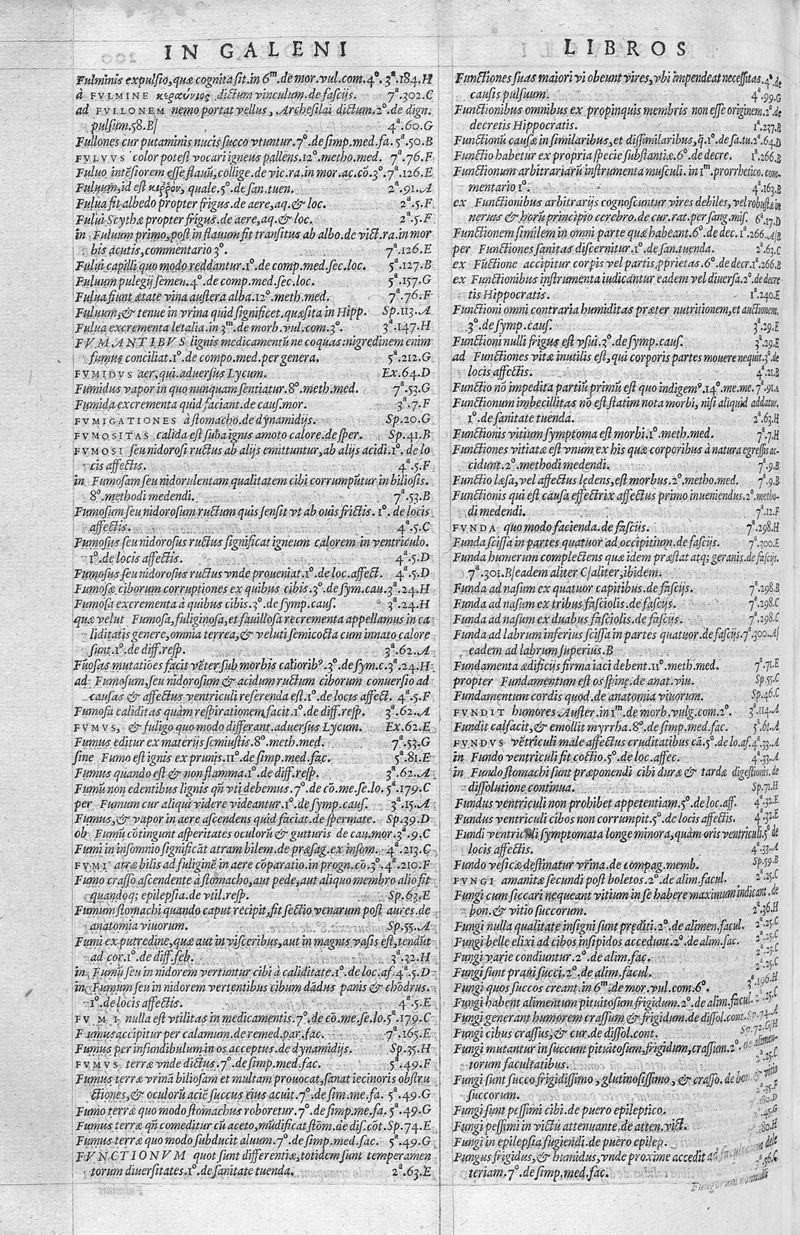 IN GALENI
Fulminis expulsio, quæ cognita sit. in 6ᵐ. de mor. vul. com. 4°. 3ª.184.H
à FVLMINE κεραύνιος dictum vinculum. de fascijs. 7ª.302.C
ad FVLLONEM nemo portat vellus, Archesilai dictum. 2°. de dign.
pulsum. 58.B| 4ª.60.G
Fullones cur putaminis nucis succo vtuntur. 7°. de simp. med. fa. 5ª.50.B
FVLVVS color potest vocari igneus pallens. 12°. metho. med. 7ª.76.F
Fuluo intēsiorem esse flauū, collige. de vic. ra. in mor. ac. cō. 3°. 7ª.126.E
Fuluum, id est κιῤῥόν, quale. 5°. de san. tuen. 2ª.91.A
Fulua fit albedo propter frigus. de aere, aq. & loc. 2ª.5.F
Fului Scythæ propter frigus. de aere, aq. & loc. 2ª.5.F
in Fuluum primo, post in flauum fit transitus ab albo. de vict. ra. in mor
bis acutis, commentario 3°. 7ª.126.E
Fului capilli quo modo reddantur. 1°. de comp. med. sec. loc. 5ª.127.B
Fuluum pulegij semen. 4°. de comp. med. sec. loc. 5ª.157.G
Fulua fiunt ætate vina austera alba. 12°. meth. med. 7ª.76.F
Fuluum, & tenue in vrina quid significet. quæsita in Hipp. Sp.113.A
Fulua excrementa letalia. in 3ᵐ. de morb. vul. com. 3°. 3ª.147.H
FVMANTIBVS lignis medicamentū ne coquas: nigredinem enim
fumus conciliat. 1°. de compo. med. per genera. 5ª.212.G
FVMIDVS aer, qui. aduersus Lycum. Ex.64.D
Fumidus vapor in quo nunquam sentiatur. 8°. meth. med. 7ª.53.G
Fumida excrementa quid faciant. de caus. mor. 3ª.7.F
FVMIGATIONES à stomacho. de dynamidijs. Sp.20.G
FVMOSITAS calida est suba ignus amoto calore. de sper. Sp.41.B
FVMOSI seu nidorosi ructus ab alijs emittuntur, ab alijs acidi. 1°. de lo
cis affectis. 4ª.5.F
in Fumosam seu nidorulentam qualitatem cibi corrumpūtur in biliosis.
8°. methodi medendi. 7ª.53.B
Fumosum seu nidorosum ructum quis sensit vt ab ouis frictis. 1°. de locis
affectis. 4ª.5.C
Fumosus seu nidorosus ructus significat igneum calorem in ventriculo.
1°. de locis affectis. 4ª.5.D
Fumosus seu nidorosus ructus vnde proueniat. 1°. de loc. affect. 4ª.5.D
Fumosæ ciborum corruptiones ex quibus cibis. 3°. de sym. cau. 3ª.24.H
Fumosa excrementa à quibus cibis. 3°. de symp. caus. 3ª.24.H
quæ velut Fumosa, fuliginosa, et fauillosa recrementa appellamus in ca
liditatis genere, omnia terrea, & veluti semicocta cum innato calore
sunt. 1°. de diff. resp. 3ª.62.A
Fūosas mutatiōes facit vēter sub morbis calioribꝰ. 3°. de sym. c. 3ª.24.H
ad Fumosum, seu nidorosum & acidum ructum ciborum conuersio ad
causas & affectus ventriculi referenda est. 1°. de locis affect. 4ª.5.F
Fumosa caliditas quàm respirationem facit. 1°. de diff. resp. 3ª.62.A
FVMVS, & fuligo quo modo differant. aduersus Lycum. Ex.62.E
Fumus editur ex materijs semiustis. 8°. meth. med. 7ª.53.G
sine Fumo est ignis ex prunis. 11°. de simp. med. fac. 5ª.81.E
Fumus quando est & non flamma. 1°. de diff. resp. 3ª.62.A
Fumū non edentibus lignis qñ vti debemus. 7°. de cō. me. se. lo. 5ª.179.C
per Fumum cur aliqui videre videantur. 1°. de symp. caus. 3ª.15.A
Fumus, & vapor in aere ascendens quid faciat. de spermate. Sp.39.D
ob Fumū cōtingunt asperitates oculorū & gutturis. de cau. mor. 3ª.9.C
Fumi in insomnio significāt atram bilem. de præsag. ex insom. 4ª.213.C
FVMI atræ bilis ad fuliginē in aere cōparatio. in progn. cō. 3°. 4ª.210.F
Fumo crasso ascendente à stomacho, aut pede, aut aliquo membro alio fit
quandoq; epilepsia. de vtil. resp. Sp.63.E
Fumum stomachi quando caput recipit, fit sectio venarum post aures. de
anatomia viuorum. Sp.55.A
Fumi ex putredine, quæ aut in visceribus, aut in magnis vasis est, tendūt
ad cor. 1°. de diff. feb. 3ª.32.H
in Fumū seu in nidorem vertuntur cibi à caliditate. 1°. de loc. af. 4ª.5.D
in Fumum seu in nidorem vertentibus cibum dādus panis & chōdrus.
1°. de locis affectis. 4ª.5.E
FVMI nulla est vtilitas in medicamentis. 7°. de cō. me. se. lo. 5ª.179.C
Fumus accipitur per calamum. de remed. par. fac. 7ª.165.E
Fumus per infundibulum in os acceptus. de dynamidijs. Sp.35.H
FVMVS terræ vnde dictus. 7°. de simp. med. fac. 5ª.49.F
Fumus terræ vrinā biliosam et multam prouocat, sanat iecinoris obstru
ctiones, & oculorū aciē succus eius acuit. 7°. de sim. me. fa. 5ª.49.G
Fumo terræ quo modo stomachus roboretur. 7°. de simp. me. fa. 5ª.49.G
Fumus terræ qñ comeditur cū aceto, mūdificat stōm. de dis. cōt. Sp.74.E
Fumus terræ quo modo subducit aluum. 7°. de simp. med. fac. 5ª.49.G
FVNCTIONVM quot sunt differentiæ, totidem sunt temperamen
torum diuersitates. 1°. de sanitate tuenda. 2ª.63.E
LIBROS
Functiones suas maiori vi obeunt vires, vbi impendeat necessitas. 4°. de
causis pulsuum. 4ª.99.G
Functionibus omnibus ex propinquis membris non esse originem. 2°. de
decretis Hippocratis. 1ª.237.B
Functionū causæ in similaribus, et dissimilaribus, q. 1°. de fa. tu. 2ª.64.D
Functio habetur ex propria specie substantiæ. 6°. de decre. 1ª.266.B
Functionum arbitrariarū instrumenta musculi. in 1ᵐ. prorrhetico. com
mentario 1°. 4ª.163.B
ex Functionibus arbitrarijs cognoscuntur vires debiles, vel robustæ in
neruis & horū principio cerebro. de cur. rat. per sang. mis. 6ª.17.D
Functionem similem in omni parte quæ habeant. 6°. de dec. 1ª.266.A|B
per Functiones sanitas discernitur. 1°. de san. tuenda. 2ª.63.C
ex Fūctione accipitur corpis vel partis proprietas. 6°. de decr. 1ª.266.B
ex Functionibus instrumenta iudicātur eadem vel diuersa. 2°. de decre
tis Hippocratis. 1ª.240.E
Functioni omni contraria humiditas præter nutritionem, et auctionem.
3°. de symp. caus. 3ª.29.E
Functioni nulli frigus est vsui. 3°. de symp. caus. 3ª.29.E
ad Functiones vitæ inutilis est, qui corporis partes mouere nequit. 3°. de
locis affectis. 4ª.21.B
Functio nō impedita partiū primū est quo indigemꝰ. 14°. me. me. 7ª.91.A
Functionum imbecillitas nō est statim nota morbi, nisi aliquid addatur.
1°. de sanitate tuenda. 2ª.63.H
Functionis vitium symptoma est morbi. 1°. meth. med. 7ª.7.H
Functiones vitiatæ est vnum ex his quæ corporibus à natura egressis ac
cidunt. 2°. methodi medendi. 7ª.9.B
Functio læsa, vel affectus lędens, est morbus. 2°. metho. med. 7ª.9.B
Functionis qui est causa effectrix affectus primo inueniendus. 2°. metho-
di medendi. 7ª.12.F
FVNDA quo modo facienda. de fascijs. 7ª.298.H
Funda scissa in partes quatuor ad occipitium. de fascijs. 7ª.300.E
Funda humerum complectens quæ idem præstat atq; geranis. de fascijs.
7ª.301.B|eadem aliter C|aliter, ibidem.
Funda ad nasum ex quatuor capitibus. de fascijs. 7ª.298.B
Funda ad nasum ex tribus fasciolis. de fascijs. 7ª.298.C
Funda ad nasum ex duabus fasciolis. de fascijs. 7ª.298.C
Funda ad labrum inferius scissa in partes quatuor. de fascijs. 7ª.300.A|
eadem ad labrum superius. B
Fundamenta ædificijs firma iaci debent. 11°. meth. med. 7ª.71.E
propter Fundamentum est os spinę. de anat. viu. Sp.57.C
Fundamentum cordis quod. de anatomia viuorum. Sp.46.C
FVNDIT humores Auster. in 1ᵐ. de morb. vulg. com. 2°. 3ª.114.A
Fundit calfacit, & emollit myrrha. 8°. de simp. med. fac. 5ª.61.A
FVNDVS vētriculi male affectus eruditatibus cā. 5°. de lo. af. 4ª.33.A
in Fundo ventriculi fit coctio. 5°. de loc. affec. 4ª.33.A
in Fundo stomachi sunt præponendi cibi duræ & tardæ digestionis. de
dissolutione continua. Sp.71.H
Fundus ventriculi non prohibet appetentiam. 5°. de loc. aff. 4ª.32.E
Fundus ventriculi cibos non corrumpit. 5°. de locis affectis. 4ª.32.E
Fundi ventriculi symptomata longe minora, quàm oris ventriculi. 5°. de
locis affectis. 4ª.33.A
Fundo vesicæ destinatur vrina. de compag. memb. Sp.59.B
FVNGI amanitæ secundi post boletos. 2°. de alim. facul. 2ª.25.C
Fungi cum siccari nequeant vitium in se habere maximum indicant. de
bon. & vitio succorum. 2ª.36.H
Fungi nulla qualitate insigni sunt prediti. 2°. de alimen. facul. 2ª.25.C
Fungi belle elixi ad cibos insipidos accedunt. 2°. de alim. fac. 2ª.25.C
Fungi varie condiuntur. 2°. de alim. fac. 2ª.25.C
Fungi sunt praui succi. 2°. de alim. facul. 2ª.25.C
Fungi quos succos creant. in 6ᵐ. de mor. vul. com. 6°. 3ª.196.H
Fungi habent alimentum pituitosum frigidum. 2°. de alim. facul. 2ª.25.C
Fungi generant humorem crassum & frigidum. de dissol. cont. Sp.74.A
Fungi cibus crassus, & cur. de dissol. cont. Sp.72.G|H
Fungi mutantur in succum pituitosum, frigidum, crassum. 2°. de alimen-
torum facultatibus. 2ª.25.C
Fungi sunt succo frigidissimo, glutinosissimo, & crasso. de bon. & vitio
succorum.
Fungi sunt pessimi cibi. de puero epileptico.
Fungi pessimi in victu attenuante. de atten. vict.
Fungi in epilepsia fugiendi. de puero epilep.
Fungus frigidus, & humidus, vnde proxime accedit ad facultatem dele
teriam. 7°. de simp. med. fac. 5ª.56.C
Fungorum nonnulli